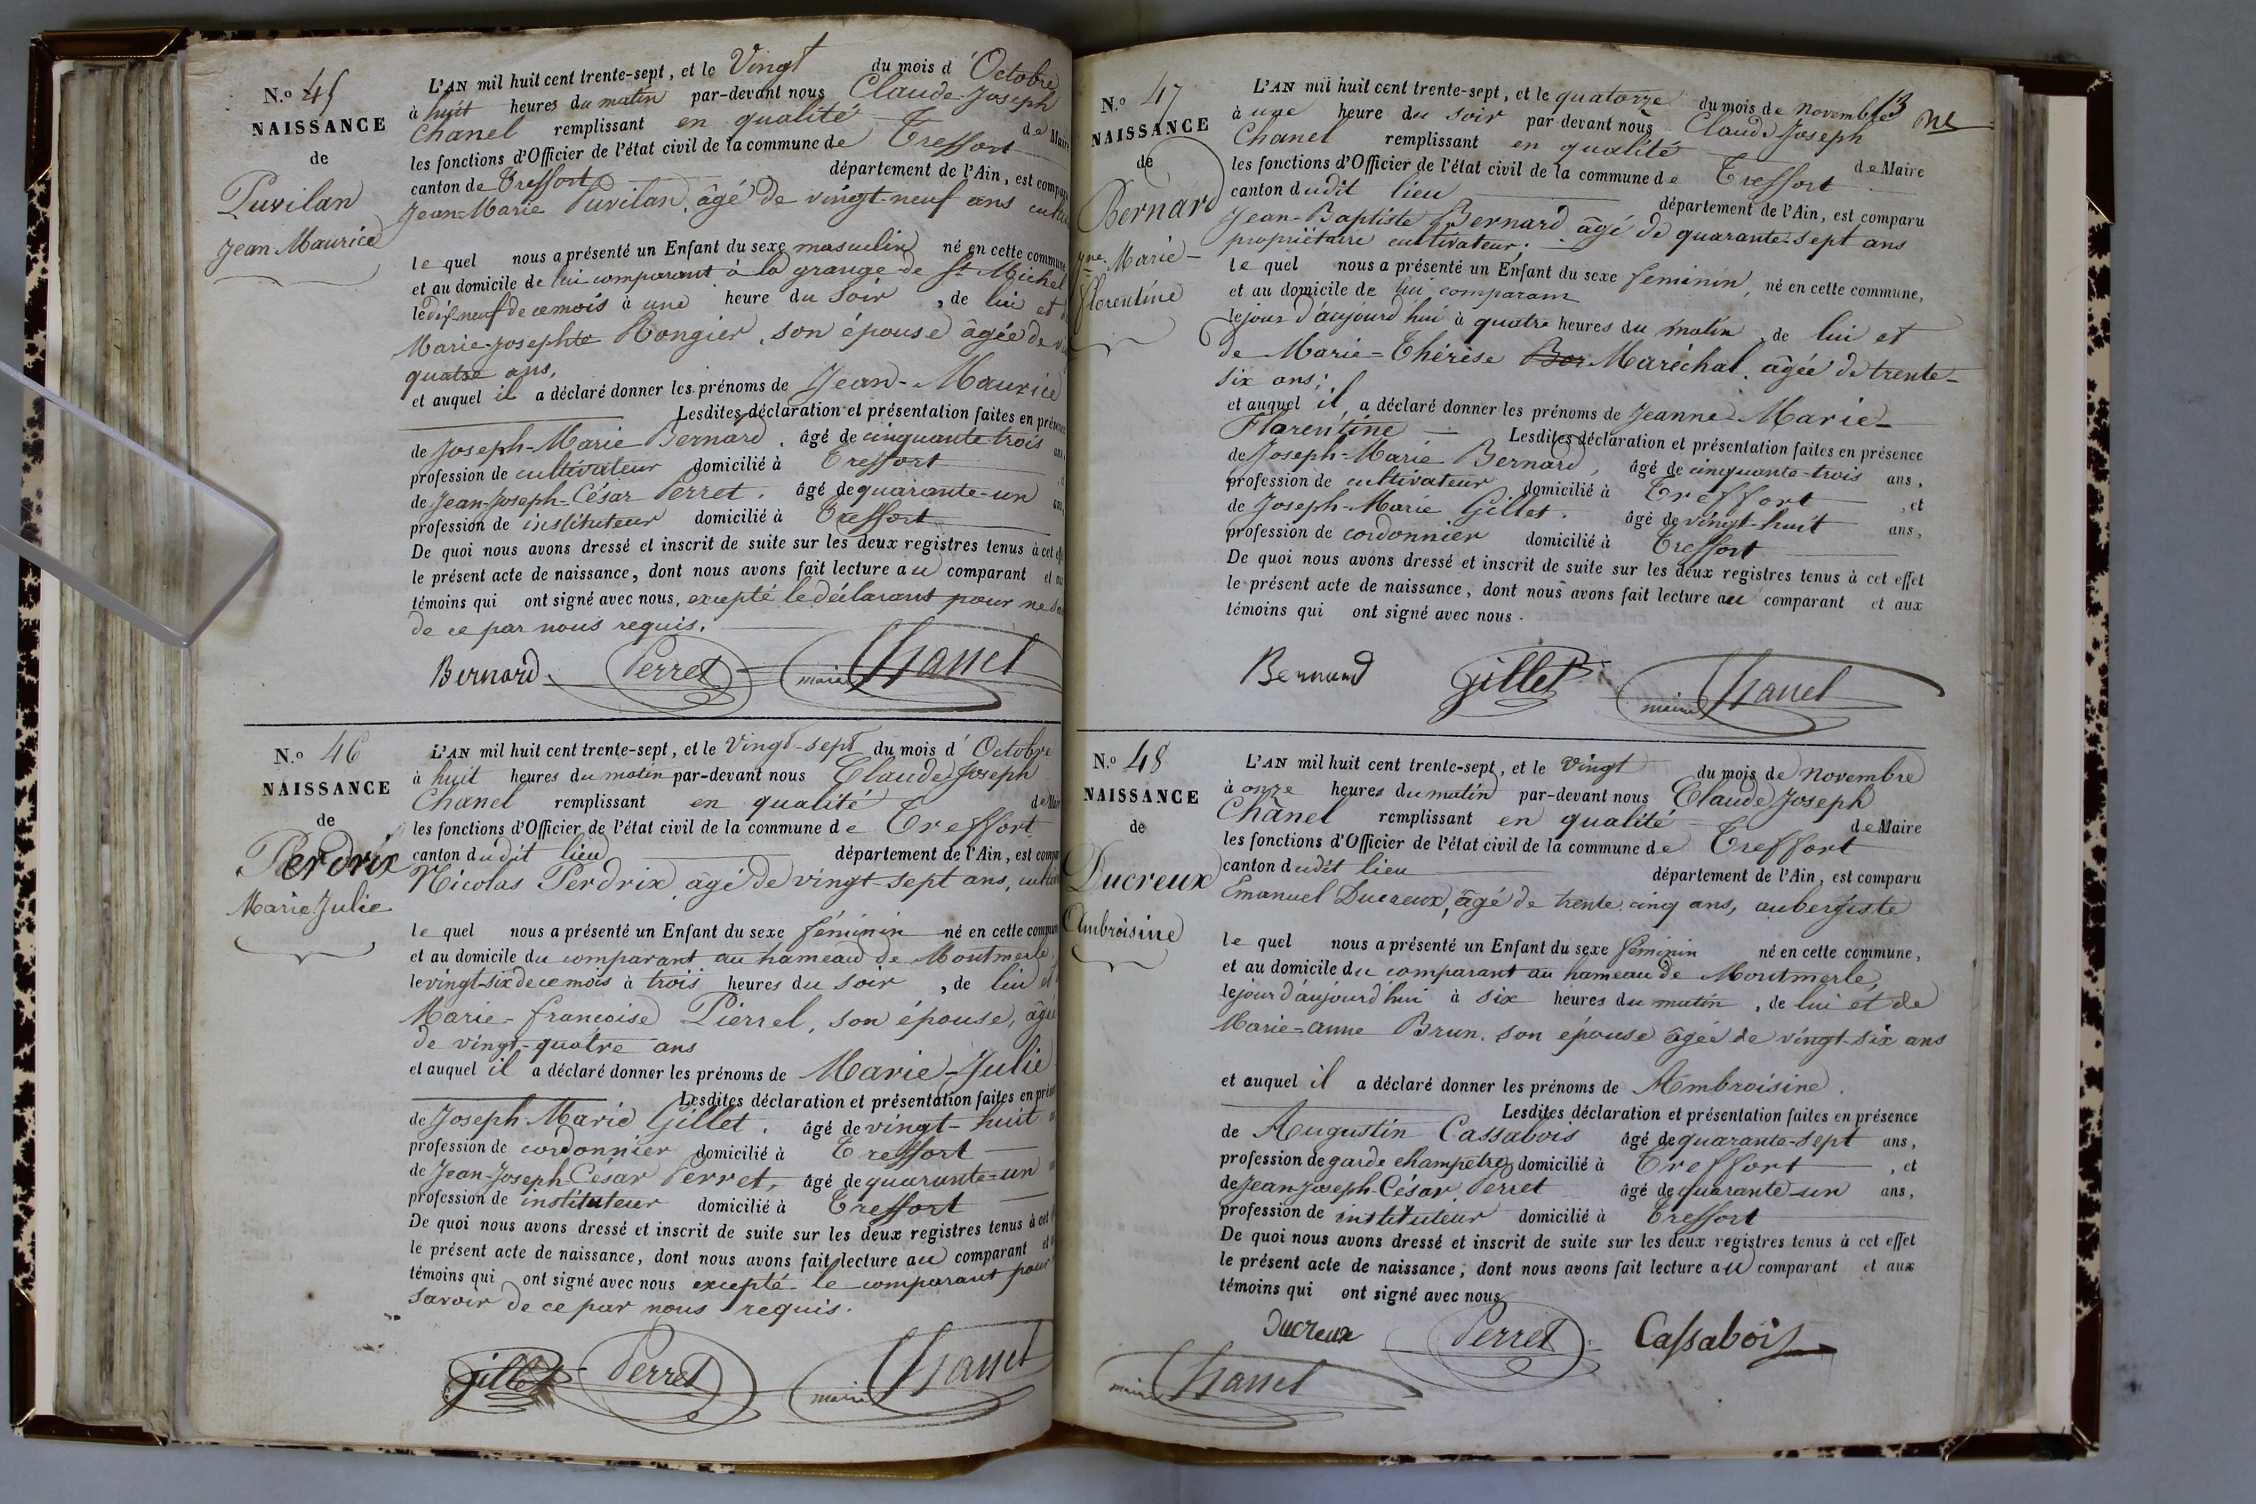 N.o 45
NAISSANCE
de
Puvilan
Jean Maurice
L'AN mil huit cent trente-sept, et le Vingt du mois d'Octobre
à huit heures du matin par-devant nous Claude-Joseph
Chanel remplissant en qualité de Maire
les fonctions d'Officier de l'état civil de la commune de Treffort
canton de Treffort département de l'Ain, est compa
Jean-Marie Puvilan, âgé de vingt-neuf ans
le quel nous a présenté un Enfant du sexe masculin né en cette commune
et au domicile de lui comparant à la grange de St Michel
le dix neuf de ce mois à une heure du soir, de lui et
Marie-josephte Rongier, son épouse âgée de
quatre ans,
et auquel il a déclaré donner les prénoms de Jean-Maurice
Lesdites déclaration et présentation faites en présence
de Joseph-Marie Bernard, âgé de cinquante-trois ans,
profession de cultivateur domicilié à Treffort
de Jean-Joseph-César Perret, âgé de quarante-un ans,
profession de instituteur domicilié à Treffort
De quoi nous avons dressé et inscrit de suite sur les deux registres tenus à cet
le présent acte de naissance, dont nous avons fait lecture au comparant et
témoins qui ont signé avec nous, excepté le déclarant pour ne
de ce par nous requis.
Bernard Perret maire Chanel
N.o 46
NAISSANCE
de
Perdrix
Marie Julie
L'AN mil huit cent trente-sept, et le Vingt-sept du mois d'Octobre
à huit heures du matin par-devant nous Claude Joseph
Chanel remplissant en qualité de
les fonctions d'Officier de l'état civil de la commune de Treffort
canton dudit lieu département de l'Ain, est
Nicolas Perdrix, âgé de vingt-sept ans,
le quel nous a présenté un Enfant du sexe féminin né en cette
et au domicile du comparant au hameau de Montmerle,
le vingt-six de ce mois à trois heures du soir, de lui et
Marie-francoise Pierrel, son épouse, âgée
de vingt-quatre ans
et auquel il a déclaré donner les prénoms de Marie-Julie
Lesdites déclaration et présentation faites en
de Joseph-Marie Gillet, âgé de vingt-huit
profession de cordonnier domicilié à Treffort
de Jean-Joseph-César Perret, âgé de quarante-un
profession de instituteur domicilié à Treffort
De quoi nous avons dressé et inscrit de suite sur les deux registres tenus à cet
le présent acte de naissance, dont nous avons fait lecture au comparant
témoins qui ont signé avec nous excepté le comparant pour
savoir de ce par nous requis.
Gillet Perret maire Chanel
13
N.o 47
NAISSANCE
de
Bernard
Marie-
florentine
L'AN mil huit cent trente-sept, et le quatorze du mois de novembre
à une heure du soir par devant nous Claude Joseph
Chanel remplissant en qualité de Maire
les fonctions d'Officier de l'état civil de la commune de Treffort
canton dudit lieu département de l'Ain, est comparu
Jean-Baptiste Bernard âgé de quarante-sept ans
propriétaire cultivateur.
le quel nous a présenté un Enfant du sexe feminin, né en cette commune,
et au domicile de lui comparant
le jour d'aujourd'hui à quatre heures du matin, de lui et
de Marie-Thérèse Maréchal, âgée de trente-
six ans,
et auquel il a déclaré donner les prénoms de Jeanne-Marie-
Florentine Lesdites déclaration et présentation faites en présence
de Joseph-Marie Bernard, âgé de cinquante-trois ans,
profession de cultivateur domicilié à Treffort, et
de Joseph-Marie Gillet. âgé de vingt-huit ans,
profession de cordonnier domicilié à Treffort
De quoi nous avons dressé et inscrit de suite sur les deux registres tenus à cet effet
le présent acte de naissance, dont nous avons fait lecture au comparant et aux
témoins qui ont signé avec nous.
Bernard Gillet maire Chanel
N.o 48
NAISSANCE
de
Ducreux
Ambroisine
L'AN mil huit cent trente-sept, et le vingt du mois de novembre
à onze heures du matin par-devant nous Claude Joseph
Chanel remplissant en qualité de Maire
les fonctions d'Officier de l'état civil de la commune de Treffort
canton dudit lieu département de l'Ain, est comparu
Emanuel Ducreux, âgé de trente cinq ans, aubergiste
le quel nous a présenté un Enfant du sexe féminin né en cette commune,
et au domicile du comparant au hameau de Montmerle,
le jour d'aujourd'hui à six heures du matin, de lui et de
Marie-anne Brun, son épouse âgée de vingt-six ans
et auquel il a déclaré donner les prénoms de Ambroisine.
Lesdites déclaration et présentation faites en présence
de Augustin Cassabois âgé de quarante-sept ans,
profession de garde champêtre domicilié à Treffort, et
de Jean-Joseph-César Perret âgé de quarante-un ans,
profession de instituteur domicilié à Treffort
De quoi nous avons dressé et inscrit de suite sur les deux registres tenus à cet effet
le présent acte de naissance, dont nous avons fait lecture au comparant et aux
témoins qui ont signé avec nous
Ducreux Perret Cassabois
maire Chanel